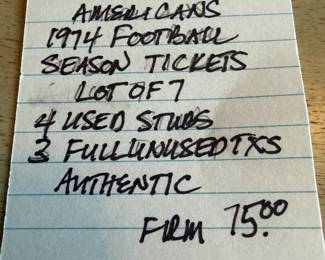 AMERICANS
1974 FOOTBALL
SEASON TICKETS
LOT OF 7
4 USED STUBS
3 FULL UNUSED TXS
AUTHENTIC
FIRM 75.00